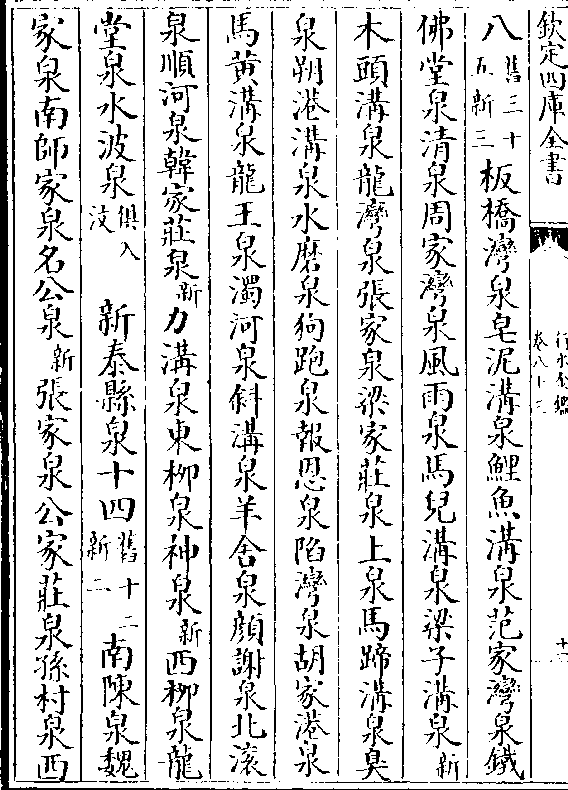 欽定四庫全書
行水金鑑
卷八十三
八舊三十五新三板橋灣泉皂泥溝泉鯉魚溝泉范家灣泉鐵
佛堂泉清泉周家灣泉風雨泉馬兒溝泉梁子溝泉新
木頭溝泉龍灣泉張家泉梁家莊泉上泉馬蹄溝泉臭
泉朔港溝泉水磨泉狗跑泉報恩泉陷灣泉胡家港泉
馬黄溝泉龍王泉濁河泉斜溝泉羊舍泉顔謝泉北滚
泉順河泉韓家莊泉新力溝泉東柳泉神泉新西柳泉龍
堂泉水波泉俱入汶 新泰縣泉十四舊十二新二南陳泉魏
家泉南師家泉名公泉新張家泉公家莊泉孫村泉西